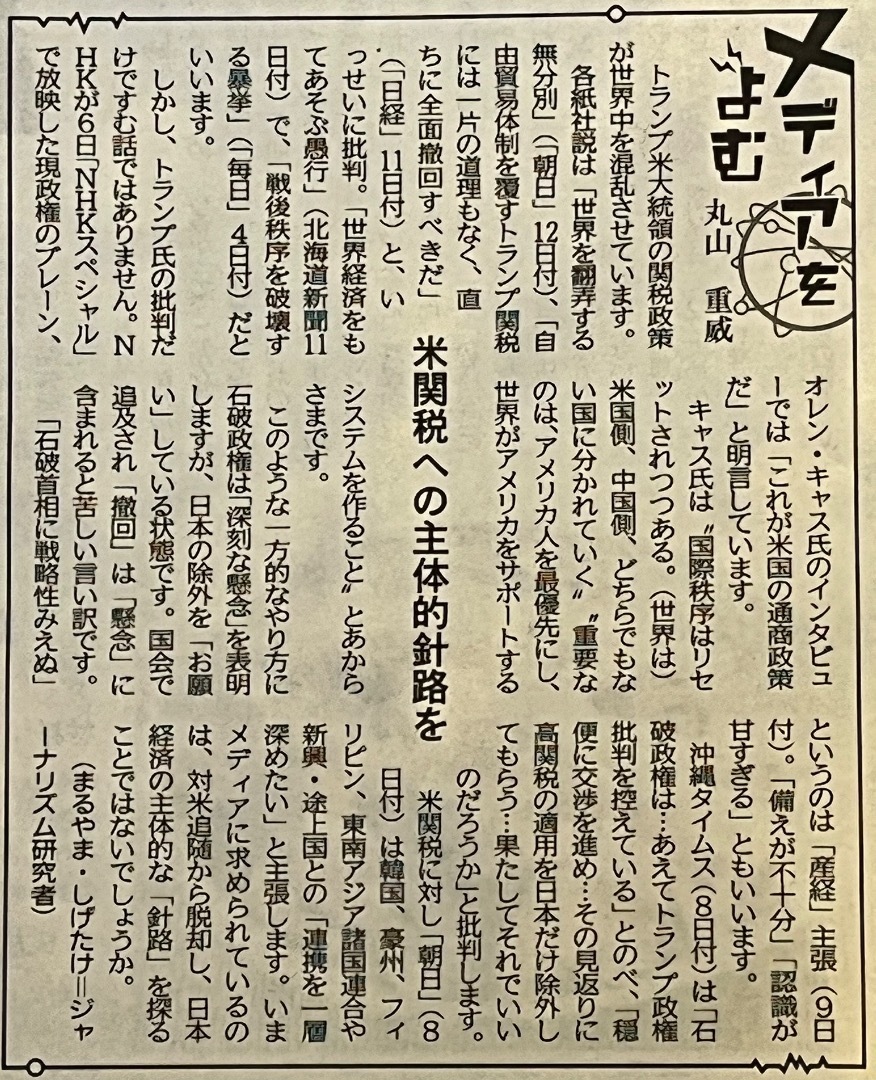 メディアを
よむ
丸山 重威
トランプ米大統領の関税政策
が世界中を混乱させています。
各紙社説は「世界を翻弄する
無分別」(「朝日」12日付)、「自
由貿易体制を覆すトランプ関税
には一片の道理もなく、直
ちに全面撤回すべきだ」
(「日経」11日付)と、い
っせいに批判。「世界経済をも
てあそぶ愚行」(北海道新聞11
日付)で、「戦後秩序を破壊す
る暴挙」(「毎日」4日付)だと
いいます。
しかし、トランプ氏の批判だ
けですむ話ではありません。N
HKが6日「NHKスペシャル」
で放映した現政権のブレーン、
米関税への主体的針路を
オレン・キャス氏のインタビュ
ーでは「これが米国の通商政策
だ」と明言しています。
キャス氏は〝国際秩序はリセ
ットされつつある。(世界は)
米国側、中国側、どちらでもな
い国に分かれていく〟〝重要な
のは、アメリカ人を最優先にし、
世界がアメリカをサポートする
システムを作ること〟とあから
さまです。
このような一方的なやり方に
石破政権は「深刻な懸念」を表明
しますが、日本の除外を「お願
い」している状態です。国会で
追及され「撤回」は「懸念」に
含まれると苦しい言い訳です。
「石破首相に戦略性みえぬ」
というのは「産経」主張(9日
付)。「備えが不十分」「認識が
甘すぎる」ともいいます。
沖縄タイムス(8日付)は「石
破政権は…あえてトランプ政権
批判を控えている」とのべ、「穏
便に交渉を進め…その見返りに
高関税の適用を日本だけ除外し
てもらう…果たしてそれでいい
のだろうか」と批判します。
米関税に対し「朝日」(8
日付)は韓国、豪州、フィ
リピン、東南アジア諸国連合や
新興・途上国との「連携を一層
深めたい」と主張します。いま
メディアに求められているの
は、対米追随から脱却し、日本
経済の主体的な「針路」を探る
ことではないでしょうか。
(まるやま・しげたけ=ジャ
ーナリズム研究者)